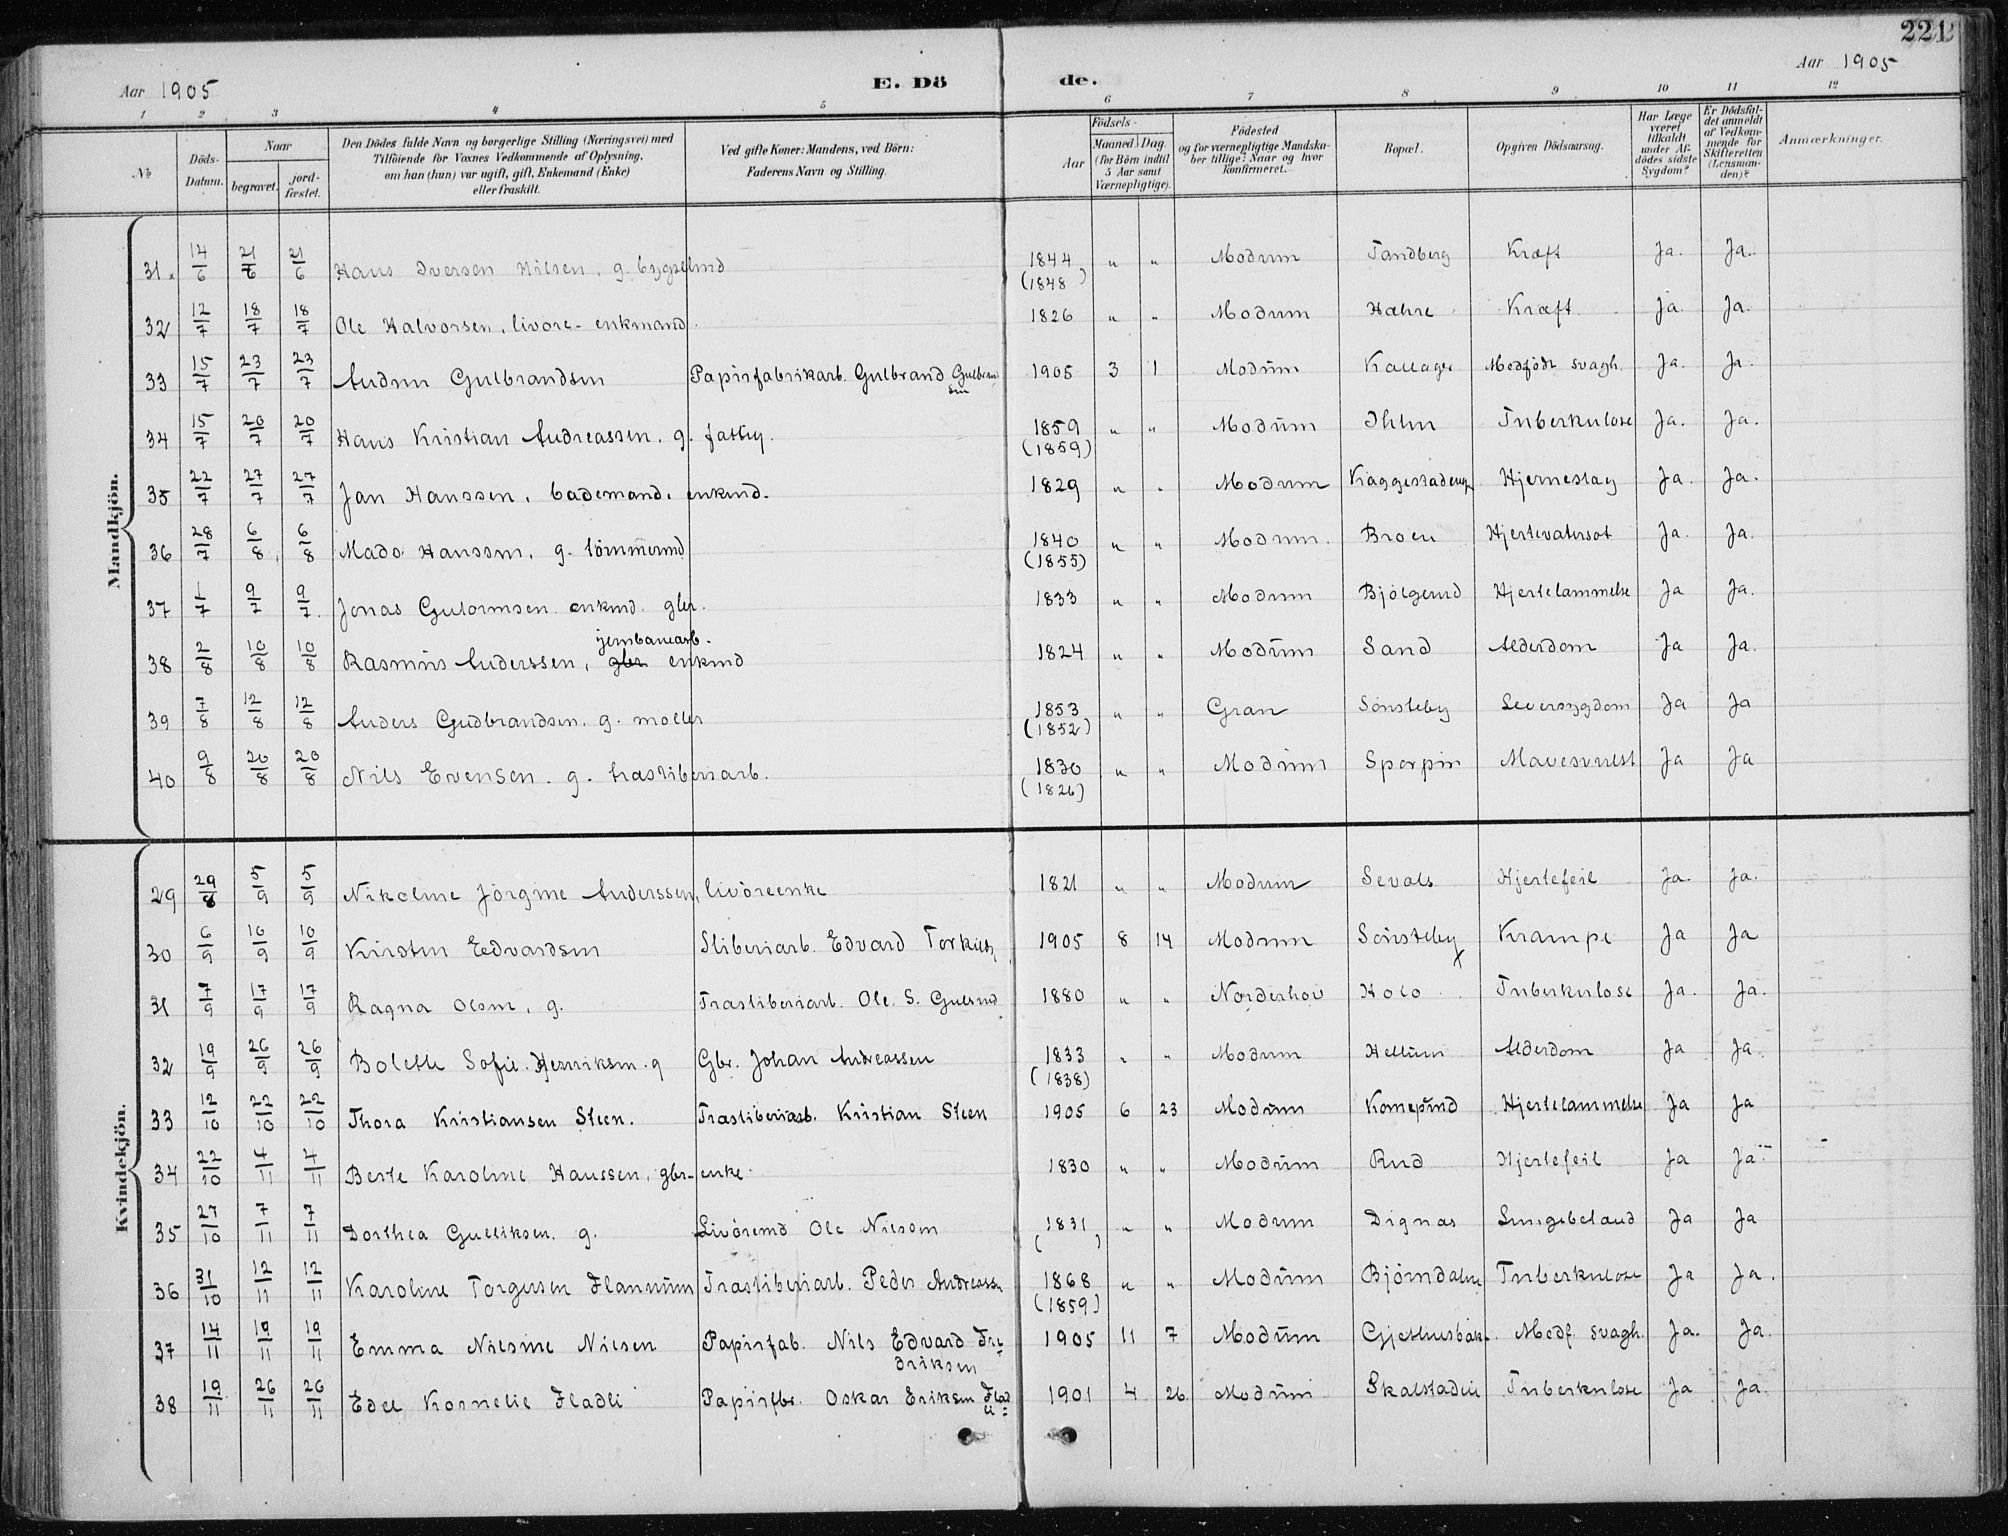 221
Aar 1905 E. Dö de. Aar 1905
1 2 3 4 5 6 7 8 9 10 11 12
No Döds-Datum. Naar begravet. jordfæstet. Den Dödes fulde Navn og borgerlige Stilling (Næringsvei) med Tilföiende for Voxnes Vedkommende af Oplysning, om han (hun) var ugift, gift, Enkemand (Enke) eller fraskilt. Ved gifte Koner: Mandens, ved Börn: Faderens Navn og Stilling. Födsels- Aar Maaned Dag (for Börn indtil 5 Aar samt Værnepligtige). Födested og for værnepligtige Mandskaber tillige: Naar og hvor konfirmeret. Bopæl. Opgiven Dödsaarsag. Har Læge været tilkaldt under Afdödes sidste Sygdom? Er Dödsfaldet anmeldt af Vedkommende for Skifteretten (Lensmanden)? Anmærkninger.
Mandkjön.
31. 14/6 21/6 21/6 Hans Iversen Nilsen, g. bygselmd 1844 (1848) " " Modum Tandberg Kræft Ja. Ja.
32 12/7 18/7 18/7 Ole Halvorsen, livöre- enkmand. 1826 " " Modum Hahre Kræft Ja. Ja.
33 15/7 23/7 23/7 Gulbrandsen Papirfabrikarb. Gulbrand Gulbrandsen 1905 3 1 Modum Kallager Medfödt svagh. Ja. Ja.
34 15/7 20/7 20/7 Hans Kristian Andreassen. g. fattig. 1859 (1859) " " Modum Ihlen Tuberkulose Ja. Ja.
35 22/7 27/7 27/7 Jan Hanssen, bademand. enkmd. 1829 " " Modum Hjerneslag Ja. Ja.
36 28/7 6/8 6/8 Mads Hanssen, g. tömmermd 1840 (1855) " " Modum. Broen Hjertevatersot Ja. Ja.
37 1/7 9/7 9/7. Jonas Gulormsen enkmd. gbr. 1833 " " Modum Bjölgerud Hjertelammelse Ja Ja.
38 2/8 10/8 10/8 Rasmus Anderssen, gbr jernbanearb. enkmd 1824 " " Modum Sand Alderdom Ja Ja.
39 7/8 12/8 12/8 Anders Gudbrandsen. g. möller 1853 (1852) " " Gran Sönsteby Leversygdom Ja Ja
40 9/8 20/8 20/8 Nils Evensen. g. træsliberiarb. 1830 (1826) " " Modum Sporpin Mavesvulst Ja Ja
Kvindekjön.
29 29/8 5/9 5/9 Nikoline Jörgine Anderssen, livöreenke 1821 " " Modum Sevals Hjertefeil Ja. Ja.
30 6/9 10/9 10/9 Kirsten Edvardsen Sliberiarb. Edvard 1905 8 14 Modum Sönsteby Krampe Ja Ja
31 7/9 17/9 17/9 Ragna Olsen, g. Træsliberiarb. Ole S. Gulsrud 1880 " " Norderhov Holo Tuberkulose Ja. Ja.
32 19/9 26/9 26/9 Bolette Sofie Henriksen. g Gbr. Johan Andreassen 1833 (1838) " " Modum Hellum Alderdom Ja Ja.
33 12/10 22/10 22/10 Thora Kristiansen Steen. Træsliberiarb. Kristian Steen 1905 6 23 Modum Komperud Hjertelammelse Ja Ja
34 22/10 4/11 4/11 Berte Karoline Hanssen, gbr- enke. 1830 " " Modum Rud Hjertefeil Ja Ja
35 27/10 7/11 7/11 Dorthea Gulliksen. g. Livöremd Ole Nilsen 1831 ( ) " " Modum Dignæs Lungebetænd Ja Ja
36 31/10 12/11 12/11 Karoline Torgersen Flannum Træsliberiarb. Peder Andreassen 1868 (1859) " " Modum Björndalen Tuberkulose Ja Ja.
37 14/11 19/11 19/11 Emma Nilsine Nilsen Papirfab. Nils Edvard Fredriksen 1905 11 7 Modum Gjethusbak. Medf. svagh. Ja. Ja.
38 19/11 26/11 26/11 Edel Kornelie Fladli Papirfbr. Oskar Eriksen Fladli 1901 4 26 Modum Tuberkulose Ja Ja.